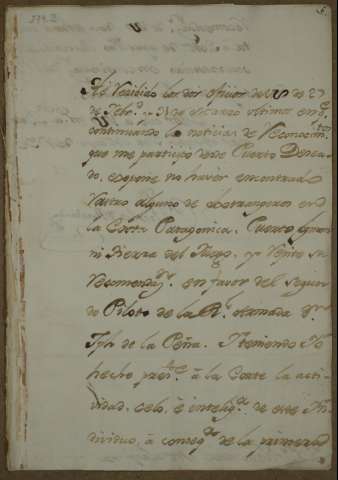 He Recibido los dos oficios de V. de 27
de Febr.o y 17 de Marzo ultimos en q.e
continuando las noticias de Reconocim.tos
que me participó desde Puerto Desea-
do, expone no haver encontrado
rastro alguno de extrangeros en
la Costa Patagonica, Puerto
ni Tierra del Fuego, y repite su
recomendaz.n en favor del segun-
do Piloto de la R.l Armada D.n
Jph de la Peña. Teniendo Yo
hecho pres.te á la Corte la acti-
vidad, celo, é intelig.a de este In-
dividuo, á conseq.a de la primera